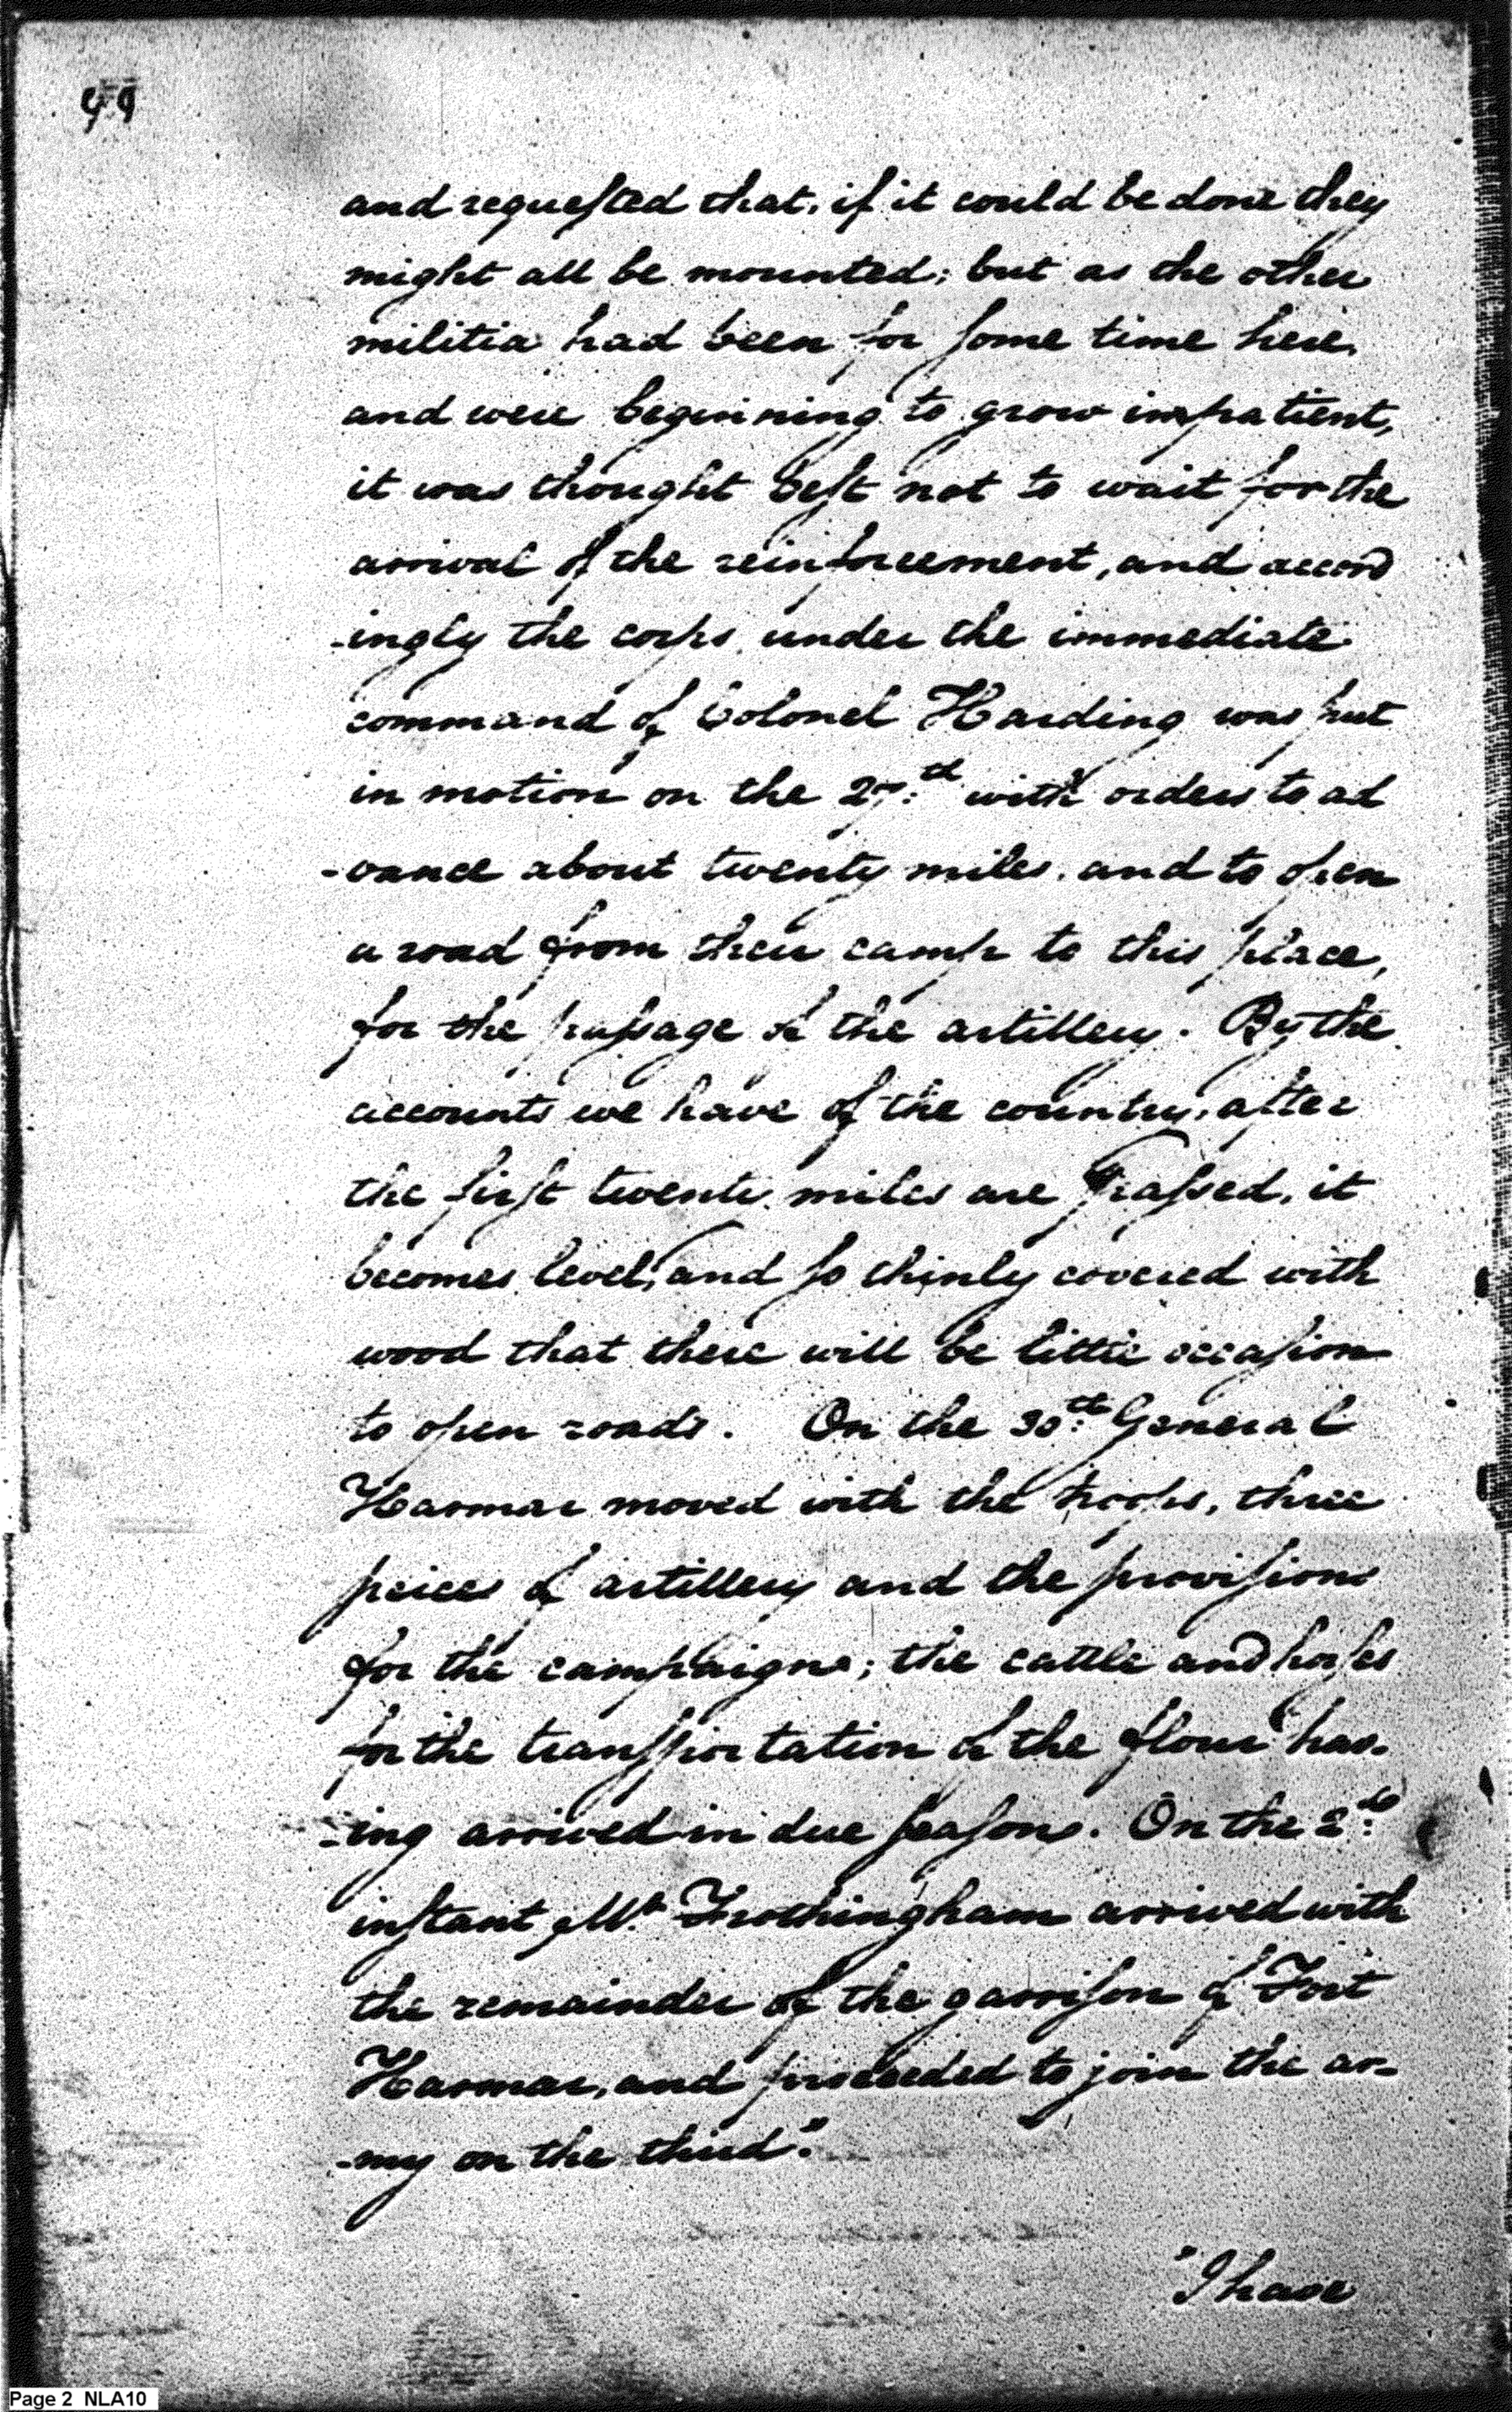 99
and requested that, if it could be done they
might all be mounted; but as the other
militia had been for some time here,
and were beginning to grow impatient,
it was thought best not to wait for the
arrival of the reinforcement, and accord
-ingly the corps, under the immediate
command of Colonel Harding was put
in motion on the 27:th with orders to ad
-vance about twenty miles, and to open
a road from their camp to this place,
for the passage of the artillery. By the
accounts we have of the country, after
the first twenty miles are passed, it
becomes level, and so thinly covered with
wood that there will be little occasion
to open roads. On the 30:th General
Harmar moved with the troops, three
peices of artillery and the provisions
for the campaign; the cattle and horses
for the transportation of the flour hav-
-ing arrived in due season. On the 2:d
instant Mr. Frothingham arrived with
the remainder of the garrison of Fort
Harmar, and proceeded to join the ar-
-my on the third."
"I have
Page 2 NLA10